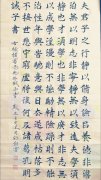 夫君子之行靜以修身儉以養德非澹
泊無以明志非寧靜無以致遠夫學須
靜也才須學也非學無以廣才非志無
以成學淫慢則不能勵精險躁則不能
治性年與時馳意與日去遂成枯落多
不接世悲守窮廬將復何及諸葛孔明
誡子書